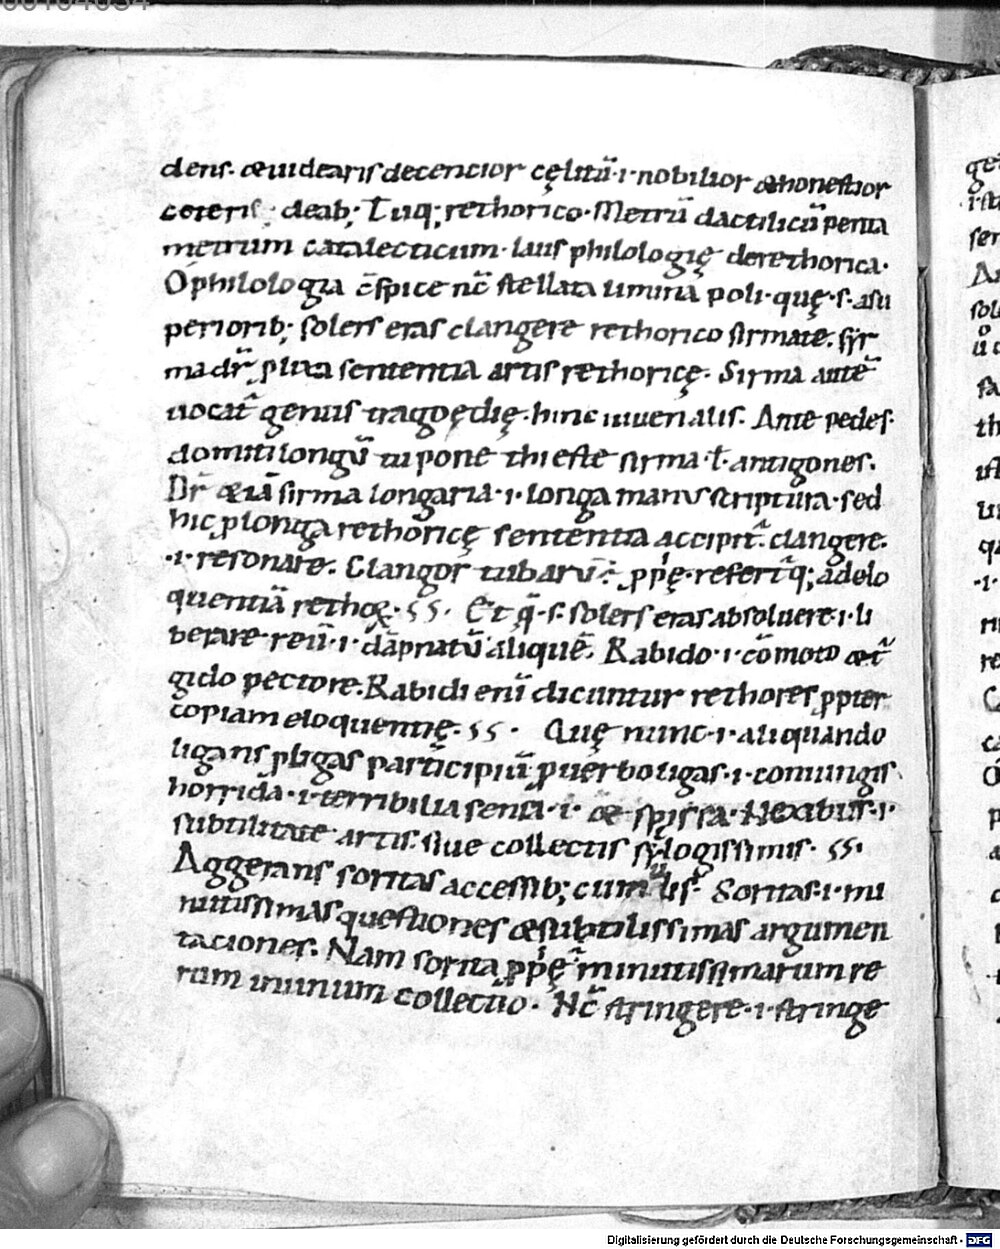 dens. & uidearis decencior cęlitū .i. nobilior & honestior
ceteris deab; Tuq; rethorico. Metrū dactilicū penta
metrum catalecticum. laus philologię de rethorica.
O philologia c̄spice nc̄ stellata limina poli. quę .s. a su
periorib; solers eras clangere rethorico sirmate. syr
ma dr̄ plixa sententia artis rethoricę. Sirma autē
uocat genus tragoędię. hinc iuuenalis. Ante pedes
domiti longū tu pone thieste sirma ł antigones.
Dr̄ & iā sirma longaria .i. longa manus scriptura. sed
hic p longa rethoricę sententia accipit̄. clangere.
.i. resonare. Clangor tubarū ÷ ppę. refert̄q; ad elo
quentiā rethoꝝ. ss. Et q̄ .s. solers eras absoluere .i. li
berare reū .i. dāpnatū aliquē. Rabido .i. cōmoto & t̄
gido pectore. Rabidi eni dicuntur rethores ppter
copiam eloquentię. ss. Quę nunc .i. aliquando
ligans p ligas participiū p uerbo ligas .i. coniungis
horrida .i. terribilia sensa .i. & spissa. Nexibus .i.
subtilitate artis. siue collectis syłogissimis. ss.
Aggerans soritas accessib; cumulis. Soritas .i. mi
nutissimas questiones & subtilissimas argumen
taciones. Nam sorita ppę minutissimarum re
rum in unum collectio. Nc̄ stringere .i. stringe
Digitalisierung gefördert durch die Deutsche Forschungsgemeinschaft - DFG